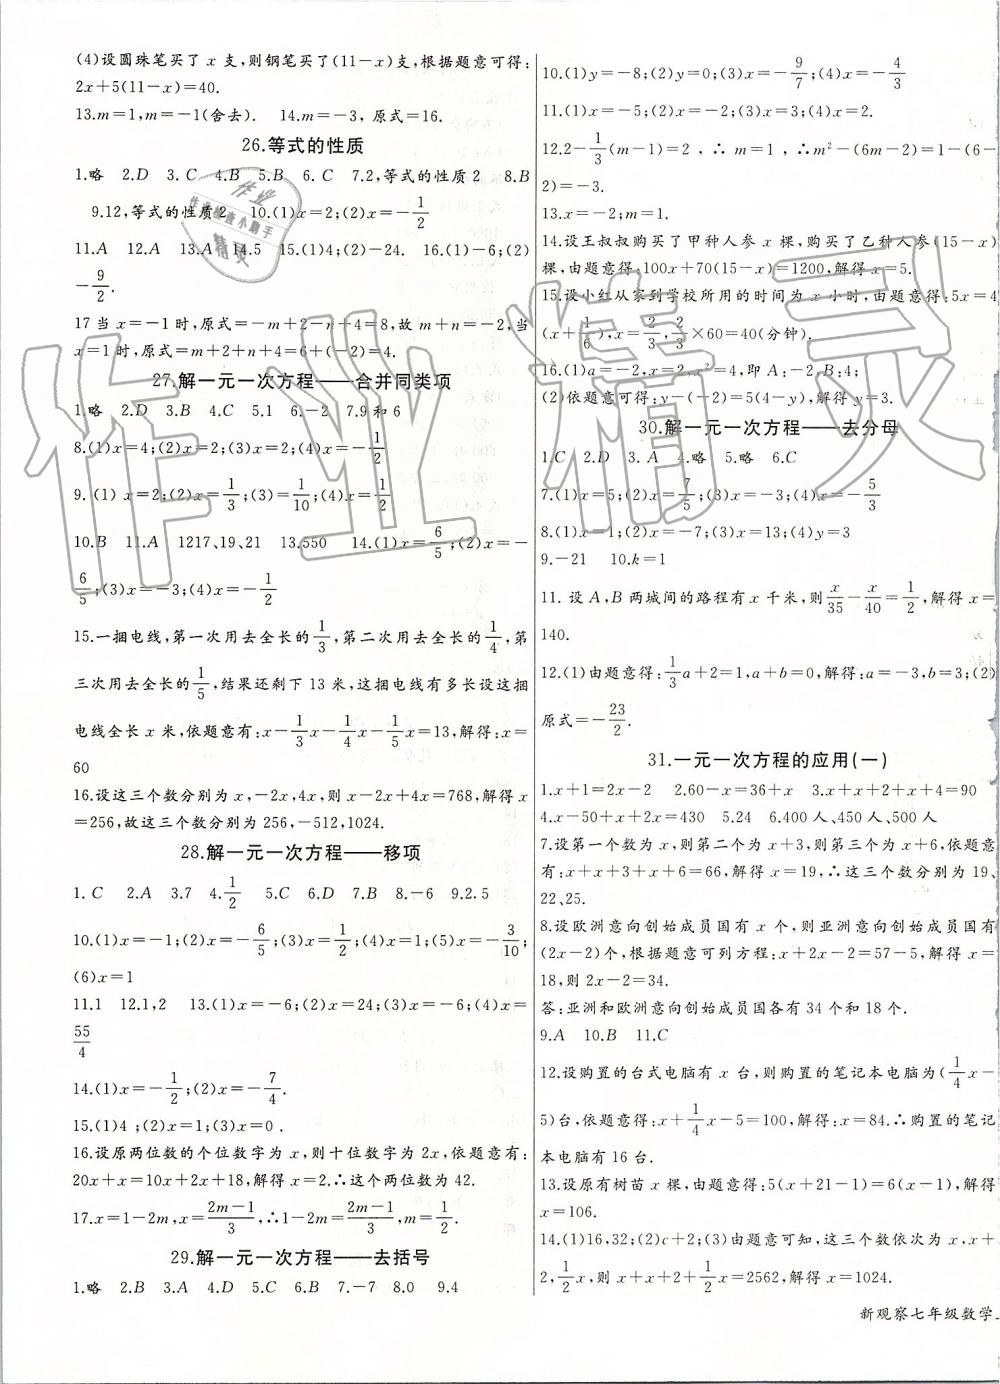 (4)设圆珠笔买了 x 支,则钢笔买了(11－x)支,根据题意可得:
2x＋5(11－x)＝40.
13.m＝1,m＝－1(舍去). 14.m＝－3, 原式＝16.
26.等式的性质
1.略 2.D 3.C 4.B 5.B 6.C 7.2,等式的性质 2 8.B
9.12,等式的性质2 10.(1)x＝2;(2)x＝－1/2
11.A 12.A 13.A 14.5 15.(1)4;(2)－24. 16.(1)－6;(2)
－9/2.
17当 x＝－1 时,原式＝－m＋2－n＋4＝8,故 m＋n＝－2,当
x＝1时,原式＝m＋2＋n＋4＝6＋(－2)＝4.
27.解一元一次方程——合并同类项
1.略 2.D 3.B 4.C 5.1 6.－2 7.9 和 6
8.(1)x＝4;(2)x＝2;(3)x＝2;(4)x＝－1/2
9.(1) x＝2;(2)x＝1/3;(3)＝1/10;(4)x＝1/2
10.B 11.A 1217、19、21 13.550 14.(1)x＝6/5;(2)x＝－
6/5;(3)x＝－3;(4)x＝－1/2
15.一捆电线,第一次用去全长的1/3,第二次用去全长的1/4,第
三次用去全长的1/5,结果还剩下 13 米,这捆电线有多长设这捆
电线全长 x 米,依题意有:x－1/3x－1/4x－1/5x＝13,解得:x＝
60
16.设这三个数分别为 x,－2x,4x,则 x－2x＋4x＝768,解得 x
＝256,故这三个数分别为 256,－512,1024.
28.解一元一次方程——移项
1.C 2.A 3.7 4.1/2 5.C 6.D 7.B 8.－6 9.2.5
10.(1)x＝－1;(2)x＝－6/5;(3)x＝1/2;(4)x＝1;(5)x＝－3/10;
(6)x＝1
11.1 12.1,2 13.(1)x＝－6;(2)x＝24;(3)x＝－6;(4)x＝
55/4
14.(1)x＝－1/2;(2)x＝－7/4.
15.(1)4 ;(2)x＝1;(3)x＝0 .
16.设原两位数的个位数字为 x,则十位数字为 2x,依题意有:
20x＋x＝10x＋2x＋18,解得 x＝2.∴这个两位数为 42.
17.x＝1－2m,x＝2m－1/3,∴1－2m＝2m－1/3,m＝1/2.
29.解一元一次方程——去括号
1.略 2.B 3.A 4.D 5.C 6.B 7.－7 8.0 9.4
10.(1)y＝－8;(2)y＝0;(3)x＝－9/7;(4)x＝－4/3
11.(1)x＝－5;(2)x＝－2;(3)x＝4;(4)x＝2.
12.2－1/3(m－1)＝2 , ∴ m＝1, ∴m²－(6m－2)＝1－(6－
2)＝－3.
13.x＝－2;m＝1.
14.设王叔叔购买了甲种人参 x 棵,购买了乙种人参(15－x)
棵,由题意得:100x＋70(15－x)＝1200,解得 x＝5.
15.设小红从家到学校所用的时间为 x 小时,由题意得:5x＝4
(x＋1/6),x＝2/3,2/3×60＝40(分钟).
16.(1)a＝－2,x＝2,x²＝4,即 A:－2,B:4;
(2)依题意可得:y－(－2)＝5(4－y),解得 y＝3.
30.解一元一次方程——去分母
1.C 2.D 3.A 4.略 5.略 6.C
7.(1)x＝5;(2)x＝7/5;(3)x＝－3;(4)x＝－5/3
8.(1)x＝1;(2)x＝－7;(3)x＝13;(4)x＝2
9.－21 10.k＝1
11. 设 A,B 两城间的路程有 x 千米,则x/35－x/40＝1/2,解得 x＝
140.
12.(1)由题意得:1/3a＋2＝1,a＋b＝0,解得:a＝－3,b＝3;(2)
原式＝－23/2.
31.一元一次方程的应用(一)
1.x＋1＝2x－2 2.60－x＝36＋x 3.x＋x＋2＋x＋4＝90
4.x－50＋x＋2x＝430 5.24 6.400 人、450 人、500 人
7.设第一个数为 x,则第二个为 x＋3,则第三个为 x＋6,依题意
有:x＋x＋3＋x＋6＝66,解得 x＝19,∴这三个数分别为 19、
22、25.
8.设欧洲意向创始成员国有 x 个,则亚洲意向创始成员国有
(2x－2)个,根据题意可列方程:x＋2x－2＝57－5,解得 x＝
18,则 2x－2＝34.
答:亚洲和欧洲意向创始成员国各有 34 个和 18 个.
9.A 10.B 11.C
12.设购置的台式电脑有 x 台,则购置的笔记本电脑为(1/4x－
5)台,依题意得:x＋1/4x－5＝100,解得:x＝84.∴购置的笔记
本电脑有 16 台.
13.设原有树苗 x 棵,由题意得:5(x＋21－1)＝6(x－1),解得
x＝106.
14.(1)16,32;(2)c＋2;(3)由题意可知,这三个数依次为 x,x＋
2,1/2x,则 x＋x＋2＋1/2x＝2562,解得 x＝1024.
新观察七年级数学
作业精灵
作业
作业检查小助手
精灵